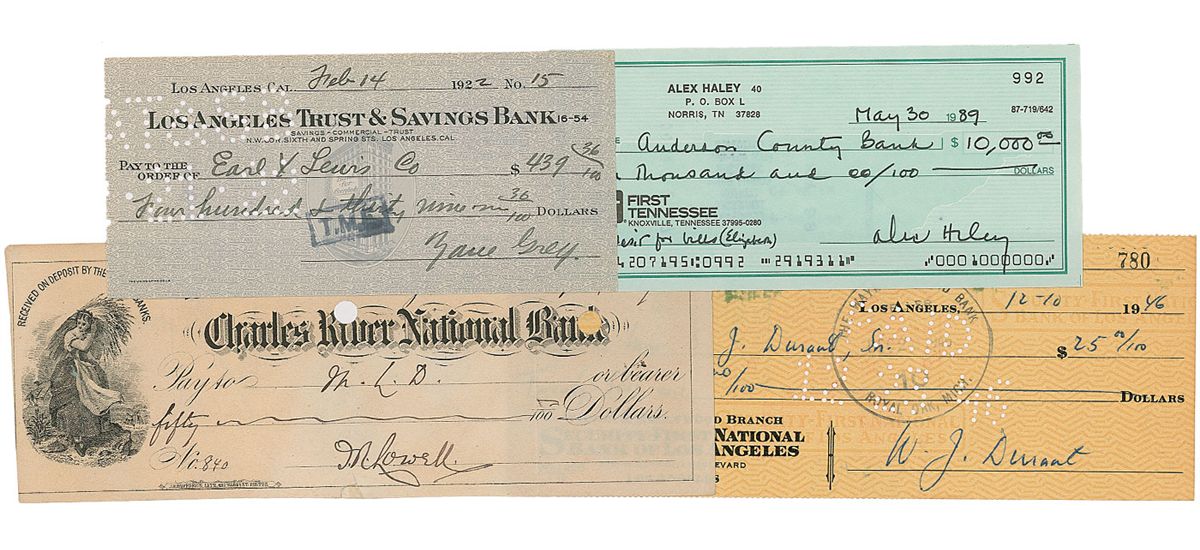 Los Angeles Cal. Feb 14 1922 No. 15
Los Angeles Trust & Savings Bank 16-54
SAVINGS - COMMERCIAL - TRUST
N.W. COR. SIXTH AND SPRING STS. LOS ANGELES, CAL.
PAY TO THE
ORDER OF Earl V Lewis Co $ 439 36/100
Four hundred & thirty nine 36/100 DOLLARS
T.M.F.
Zane Grey.
992
ALEX HALEY 40
P. O. BOX L
NORRIS, TN 37828
87-719/642
May 30 1989
Anderson County Bank $ 10,000.00
Thousand and 00/100 DOLLARS
FIRST
TENNESSEE
KNOXVILLE, TENNESSEE 37995-0280
for bills (Elizabeth)
Alex Haley
4207195 0992 2919311 0001000000
RECEIVED ON DEPOSIT BY THE
BANKS.
Charles River National Bank
Pay to M. L. D. or bearer
fifty 100 Dollars.
No. 840
M. Lowell.
780
LOS ANGELES, 12-10 1946
J. Durant, Sr. $ 25 00/100
/100 DOLLARS
PAID
ROYAL OAK, MICH.
D BRANCH
NATIONAL
ANGELES
EVARD
S
W. J. Durant